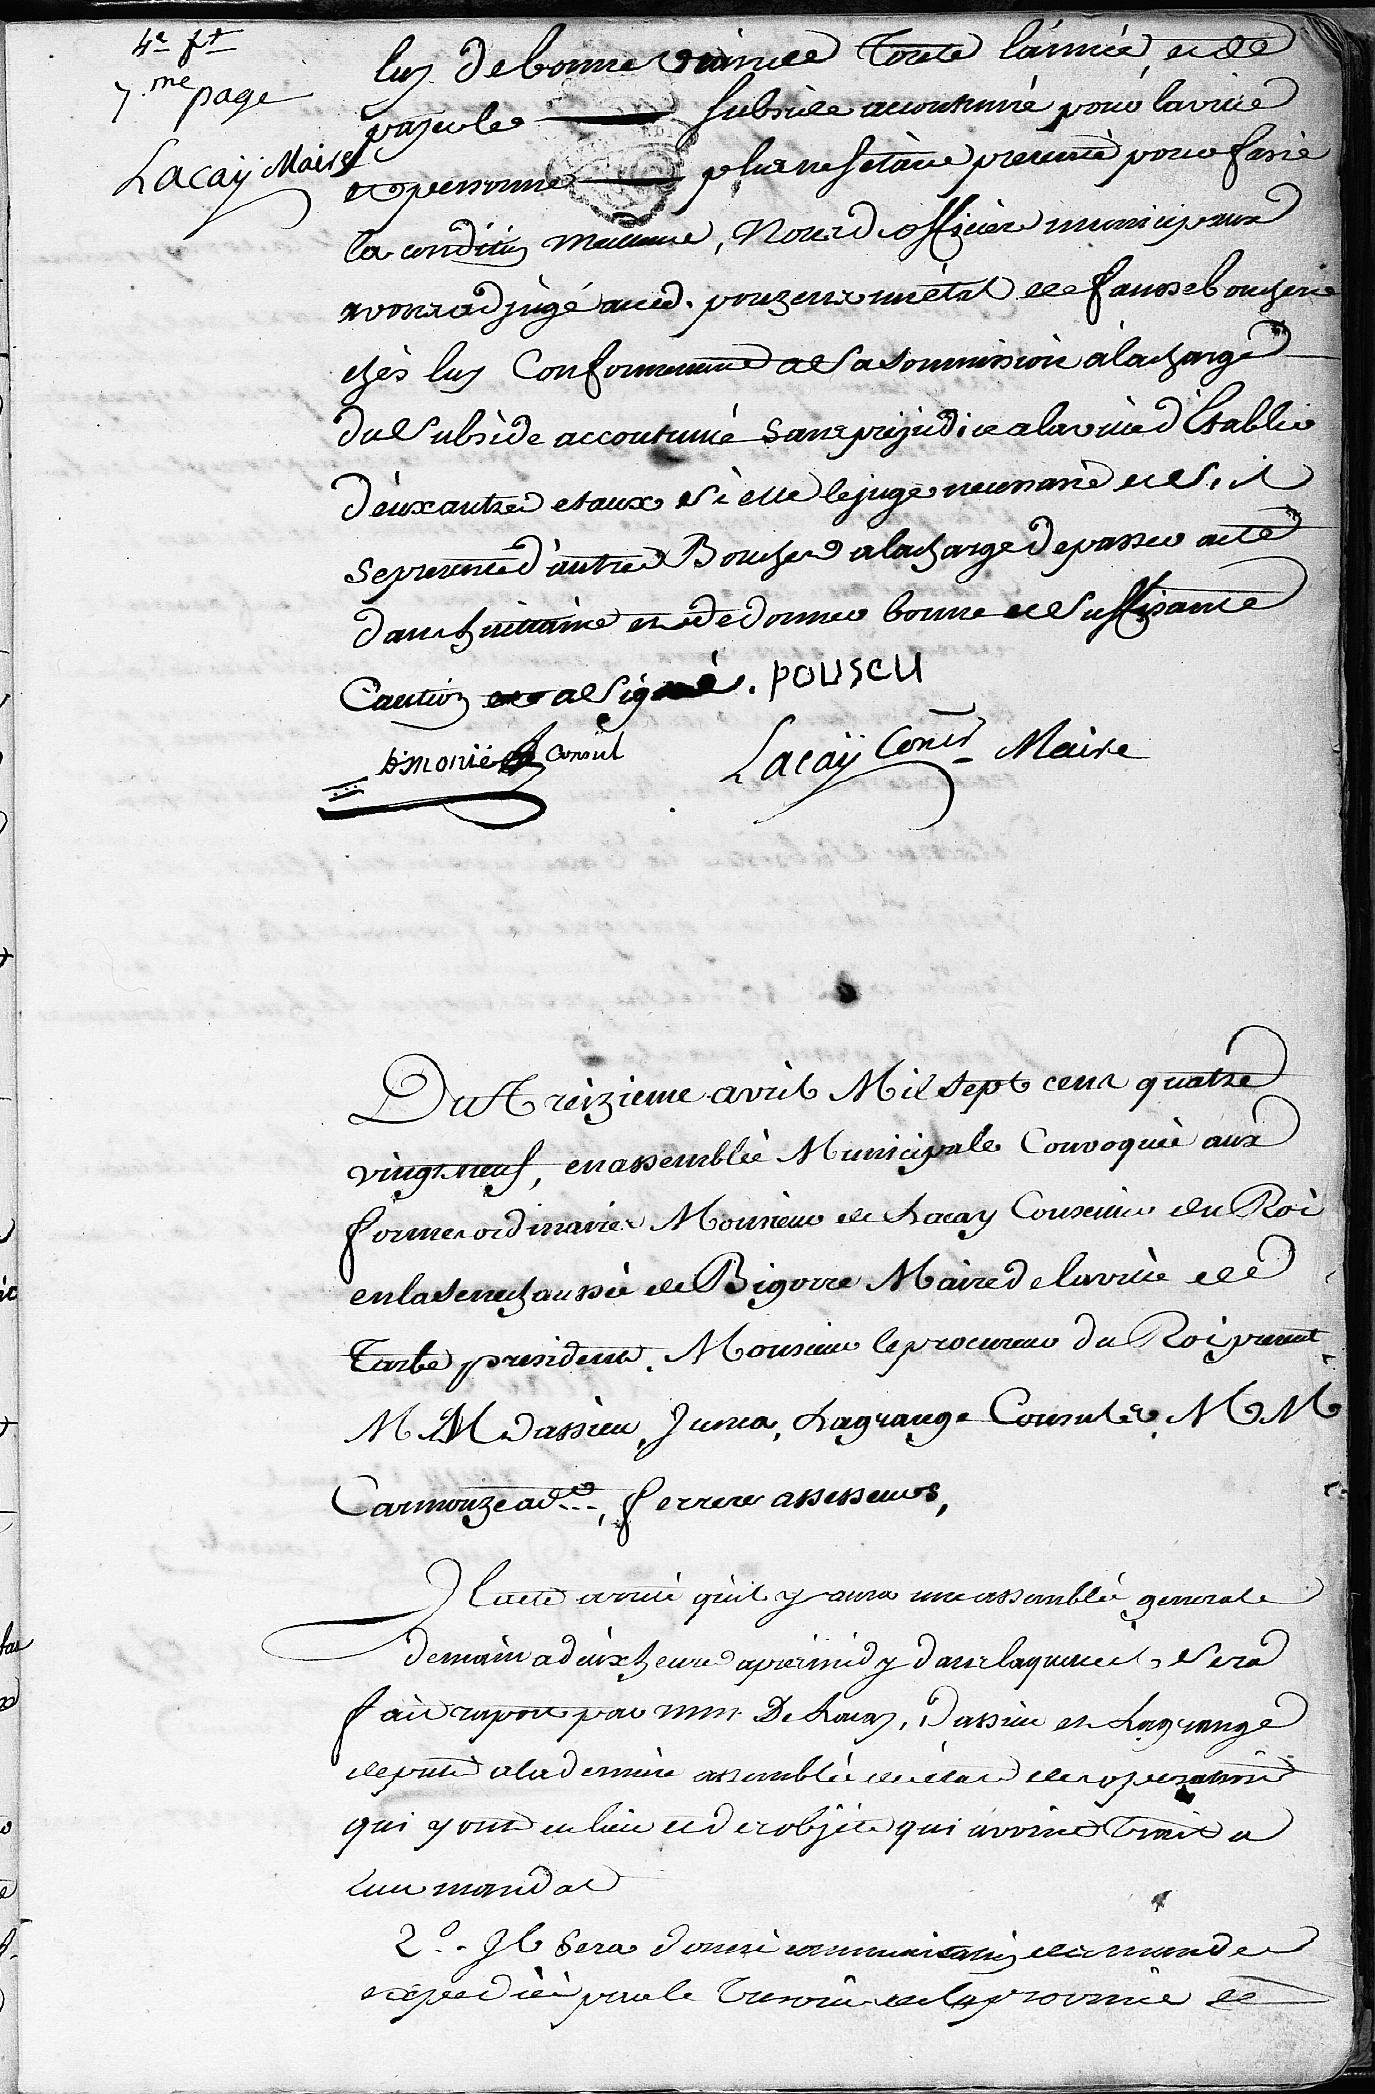 4e. ft
7.me page
Lacaÿ Maire
luy de bonne viande toute l'année, et de
payer le subside accoutumé pour la ville
et personne plus ne setant presenté pour faire
la condition meilleure, Nous d. officiers municipaux
avons adjugé aud. pouzeu un état de fausse boucherie
chès luy Conformement a sa soumission à la charge
du subside accoutumé sans prejudice a la ville d'Etablir
deux autres etaux si elle le juge necessaire et s'il
se presente d'autres Bouchers a la charge de passer acte
dans huitaine et de donner bonne et suffisante
Caution et a signé. POUSCU
consul Lacaÿ Conser Maire
Du treizieme avril Mil sept cent quatre
vingt neuf, en assemblée Municipale Convoquée aux
formes ordinaires Monsieur de Lacay Conseiller du Roi
en la senechaussée de Bigorre Maire de la ville de
Tarbe president. Monsieur le procureur du Roi present
M M dassieu, Junca, Lagrange Consuls, M M
Carmouze ad..., ferrere assesseurs,
Il a eté arreté qu'il y aura une assemblée generale
demain a deux heures apres midy dans laquelle il sera
fait raport par mrs. De Lacay, Dassieu et Lagrange
deputés a la derniere assemblée des états des operations
qui y ont eu lieu et des objets qui avoient trait a
leur mandat
2o. Il sera donné communication des mandes
expediés par le Tresorier de la province de